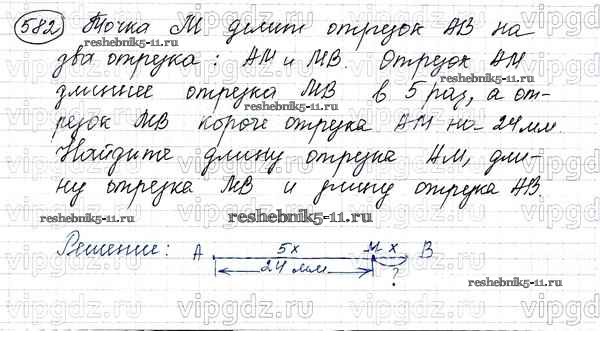 582. Точка М делит отрезок АВ на
два отрезка: АМ и МВ. Отрезок АМ
длиннее отрезка МВ в 5 раз, а от-
резок МВ короче отрезка АМ на 24 мм.
Найдите длину отрезка АМ, дли-
ну отрезка МВ и длину отрезка АВ.
Решение: А 5х М х В
24 мм ?
reshebnik5-11.ru
reshebnik5-11.ru
reshebnik5-11.ru
reshebnik5-11.ru
reshebnik5-11.ru
reshebnik5-11.ru
vipgdz.ru